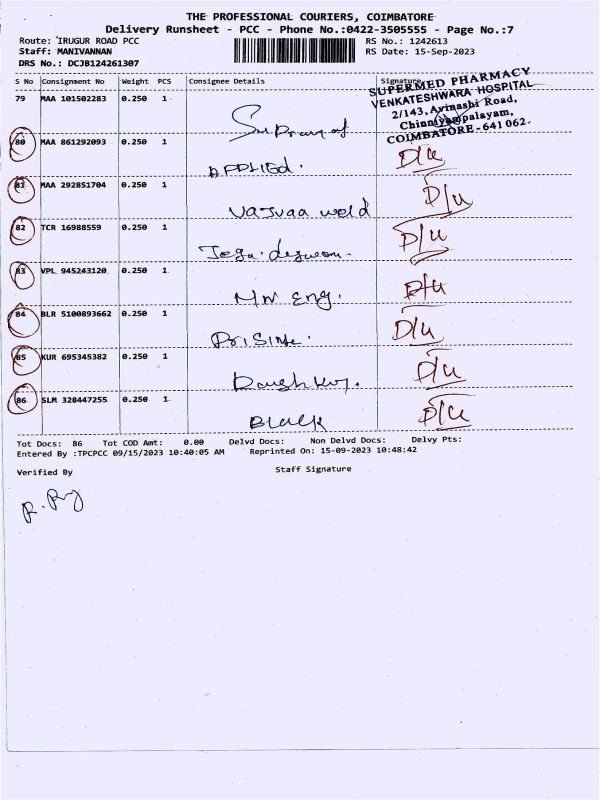 THE PROFESSIONAL COURIERS, COIMBATORE
Delivery Runsheet - PCC - Phone No.:0422-3505555 - Page No.:7
Route: IRUGUR ROAD PCC RS No.: 1242613
Staff: MANIVANNAN RS Date: 15-Sep-2023
DRS No.: DCJB124261307
S No Consignment No Weight PCS Consignee Details Signature
SUPERMED PHARMACY
VENKATESHWARA HOSPITAL
2/143, Avinashi Road,
Chinniyampalayam,
COIMBATORE - 641 062.
79 MAA 101502283 0.250 1
80 MAA 861292093 0.250 1 D/u
APPLIEd.
81 MAA 292851704 0.250 1 D/u
Vajvaa weld
82 TCR 16988559 0.250 1 D/u
83 VPL 945243120 0.250 1 D/u
Eng.
84 BLR 5100893662 0.250 1 D/u
85 KUR 695345382 0.250 1 D/u
86 SLM 328447255 0.250 1 D/u
Black
Tot Docs: 86 Tot COD Amt: 0.00 Delvd Docs: Non Delvd Docs: Delvy Pts:
Entered By :TPCPCC 09/15/2023 10:40:05 AM Reprinted On: 15-09-2023 10:48:42
Verified By Staff Signature